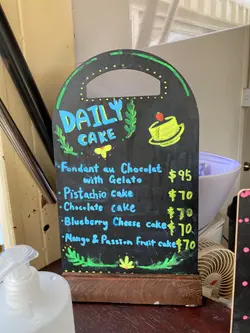 DAILY
CAKE
· Fondant au Chocolat
with Gelato $95
· Pistachio cake $70
· Chocolate cake $70
· Blueberry Cheese cake $70
· Mango & Passion Fruit cake $70